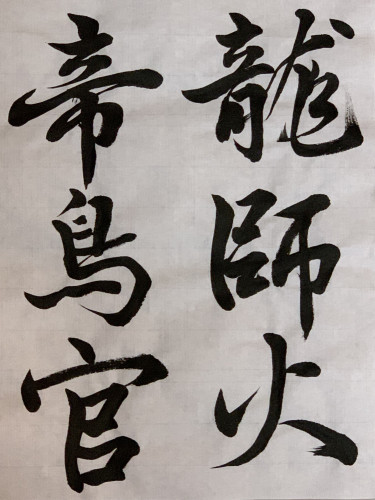 龍師火
帝鳥官